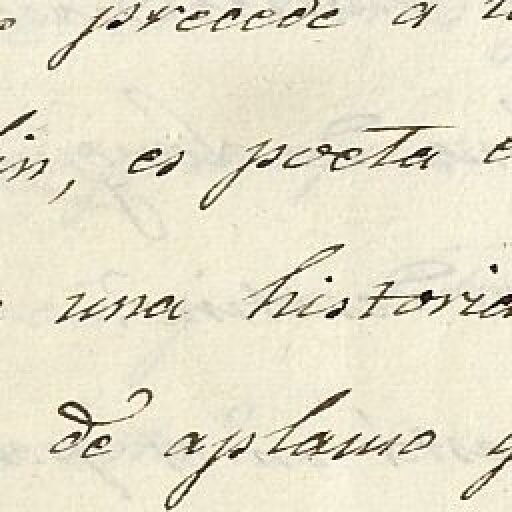 precede a
lin, es poeta e
una historia
de aplauso y